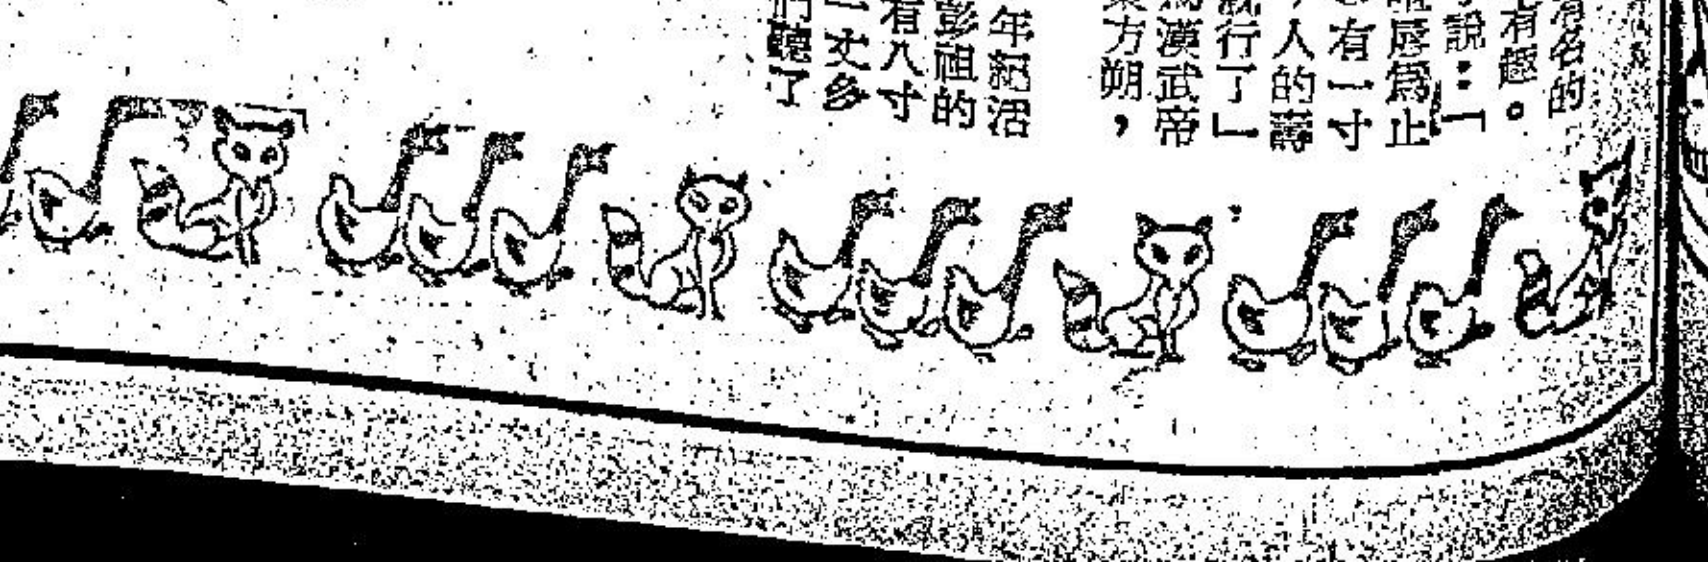 有名的
有趣。
說：「
唇為止
有一寸
人的壽
就行了」
漢武帝
東方朔，
年紀活
彭祖的
有八寸
一丈多
們聽了